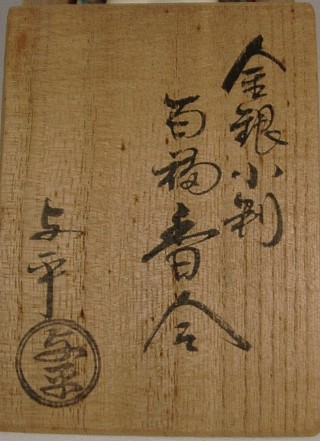 金銀小判
百福香合
与平
与平